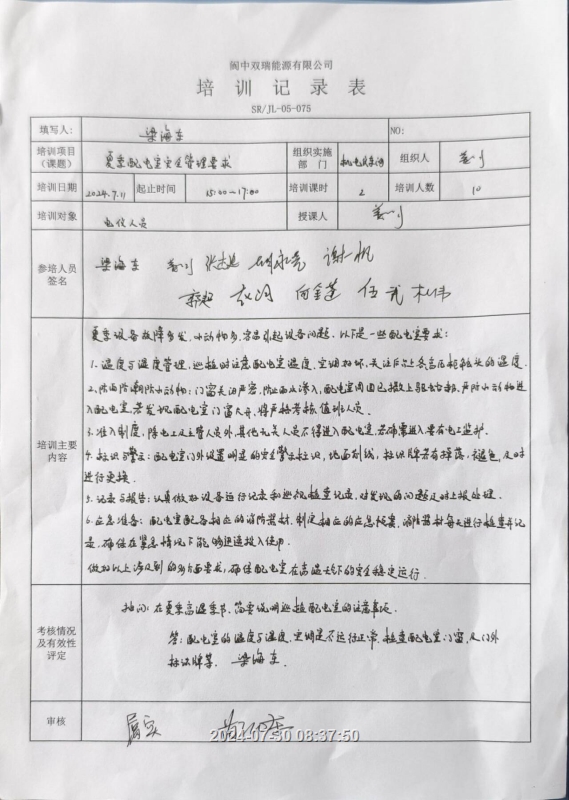 阆中双瑞能源有限公司
培训记录表
SR/JL-05-075
填写人: 梁海东 NO:
培训项目(课题) 夏季配电室安全管理要求 组织实施部门 组织人
培训日期 2024.7.11 起止时间 15:00~17:00 培训课时 2 培训人数 10
培训对象 电仪人员 授课人
参培人员签名 梁海东 谢帆
向金莲 伍武
培训主要内容
夏季设备故障多发,小动物多,容易引起设备问题,以下是一些配电室要求:
1.温度与湿度管理,巡检时注意配电室温度,空调好坏,关注后台上各高压柜柜头的温度.
2.防雨防潮防小动物:门窗关闭严密,防止雨水渗入,配电室周围已撒上驱虫药,严防小动物进
入配电室,若发现配电室门窗大开,将严格考核值班人员.
3.准入制度,除电工及主管人员外,其他无关人员不得进入配电室,若确需进入要有电工监护.
4.标识与警示:配电室门外设置明显的安全警示标识,地面划线,标识牌若有掉落,褪色,及时
进行更换.
5.记录与报告:认真做好设备运行记录和巡视检查记录,对发现的问题及时上报处理.
6.应急准备:配电室配备相应的消防器材,制定相应的应急预案,消防器材每天进行检查并记
录,确保在紧急情况下能够迅速投入使用.
做好以上涉及到的多方面要求,确保配电室在高温天气下的安全稳定运行.
考核情况及有效性评定
抽问:在夏季高温季节,简要说明巡检配电室的注意事项.
答:配电室的温度与湿度,空调是否运行正常,检查配电室门窗,及门外
标识牌等. 梁海东.
审核 属实
2024-07-30 08:37:50